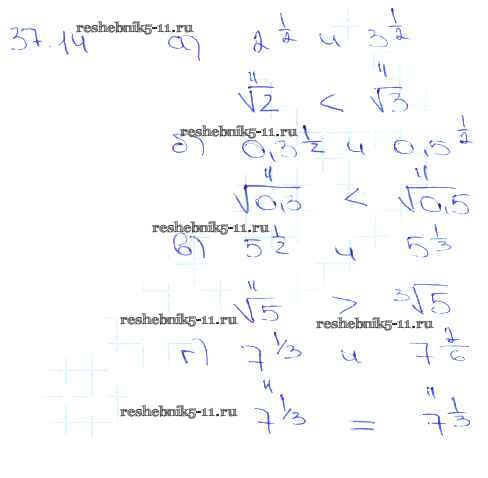 reshebnik5-11.ru
37.14 а) 2^{1/2} и 3^{1/2}
√2 < √3
reshebnik5-11.ru
б) 0,3^{1/2} и 0,5^{1/2}
√0,3 < √0,5
reshebnik5-11.ru
в) 5^{1/2} и 5^{1/3}
√5 > ∛5
reshebnik5-11.ru reshebnik5-11.ru
г) 7^{1/3} и 7^{2/6}
reshebnik5-11.ru
7^{1/3} = 7^{1/3}